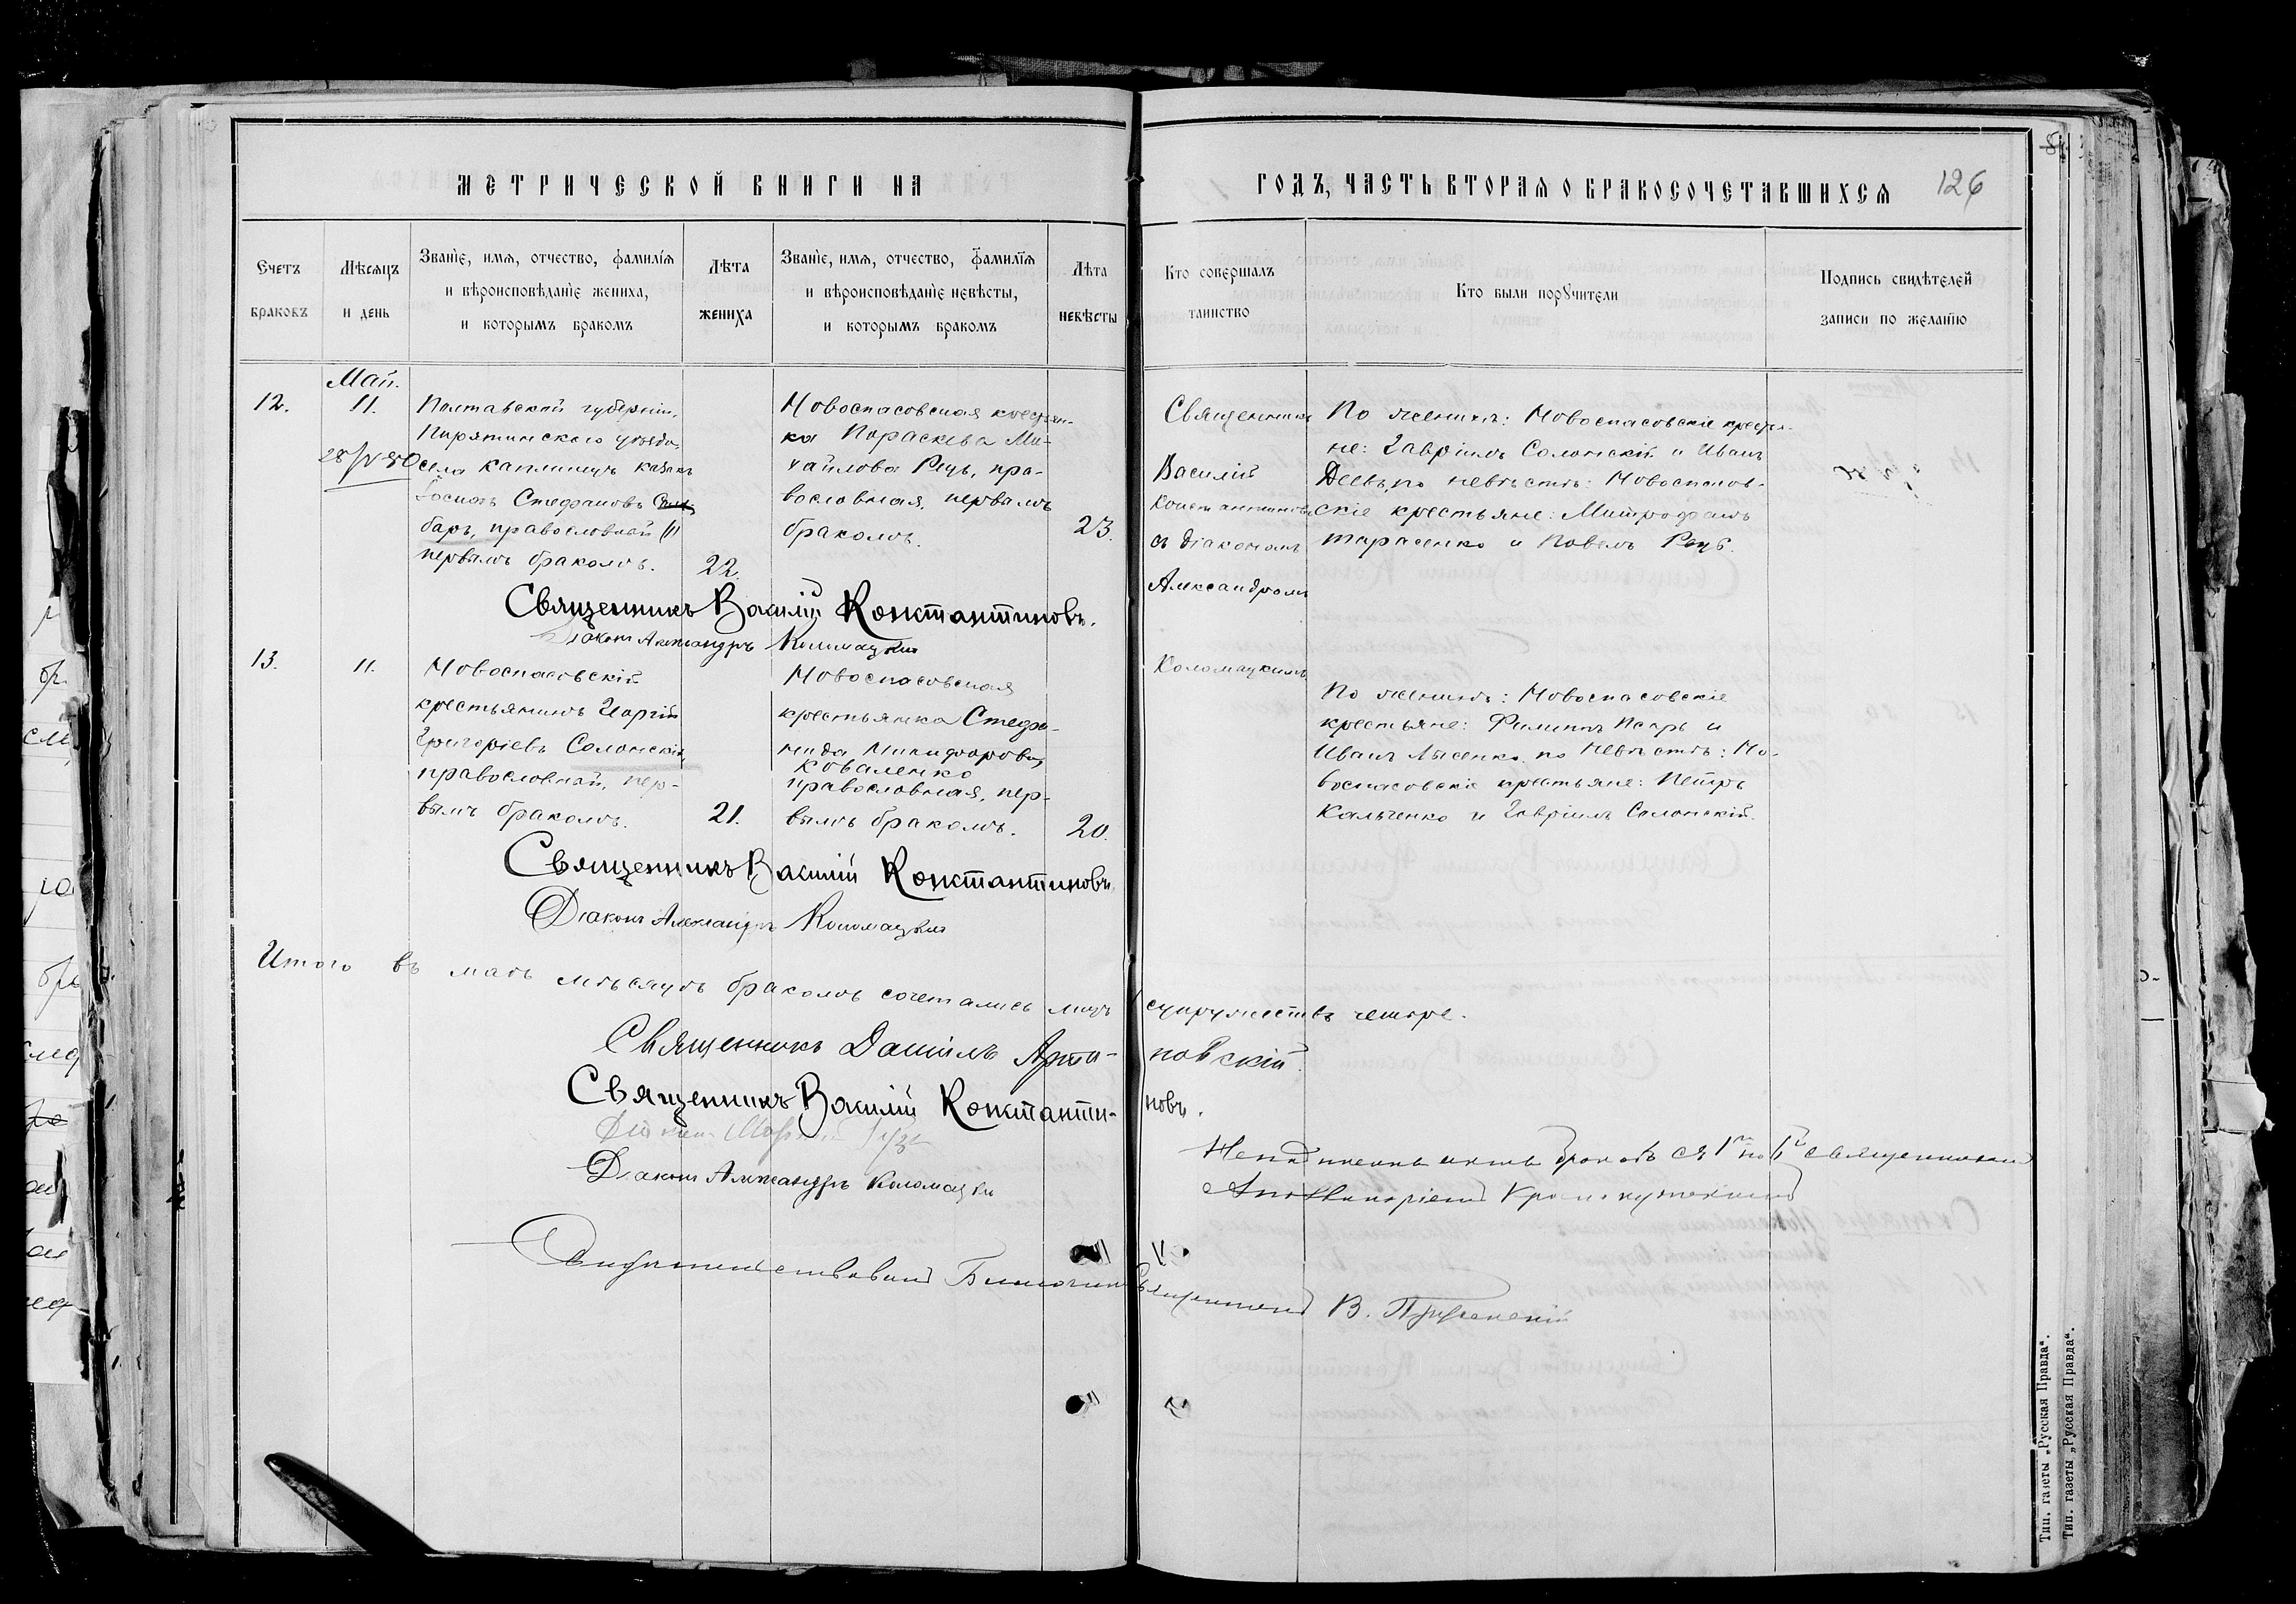 МЕТРИЧЕСКОЙ КНИГИ НА
Счетъ браковъ
Мѣсяцъ и день
Званіе, имя, отчество, фамилія
и вѣроисповѣданіе жениха,
и которымъ бракомъ
Лѣта
жениха
Званіе, имя, отчество, фамилія
и вѣроисповѣданіе невѣсты,
и которымъ бракомъ
Лѣта
невѣсты
Май.
12.
11.
Полтавской губерніи,
Пирятинскаго уѣзда,
села Каплинцъ казакъ
Стефановъ
баръ, православный
первымъ бракомъ.
22.
Новоспасовская крестьян-
ка Параскева Ми-
хайлова Рецъ, пра-
вославная, первымъ
бракомъ.
23.
Священникъ Василій Константиновъ.
Діаконъ Александръ Коломацкій
13.
11.
Новоспасовскій
крестьянинъ Георгій
Григоріевъ Солонскій,
православный, пер-
вымъ бракомъ.
21.
Новоспасовская
крестьянка Стефа-
нида Никифорова
Коваленко
православная, пер-
вымъ бракомъ.
20.
Священникъ Василій Константиновъ
Діаконъ Александръ Коломацкій
ГОДЪ, ЧАСТЬ ВТОРАЯ О БРАКОСОЧЕТАВШИХСЯ
126
Кто совершалъ
таинство
Кто были поручители
Подпись свидѣтелей
записи по желанію
Священникъ
Василій
Константиновъ
съ діакономъ
Александромъ
Коломацкимъ
По женихѣ: Новоспасовскіе крестья-
не: Гавріилъ Солонскій и Иванъ
Деевъ, по невѣстѣ: Новоспасов-
скіе крестьяне: Митрофанъ
Тарасенко и Павелъ Рецъ.
По женихѣ: Новоспасовскіе
крестьяне: Филиппъ Писаръ и
Иванъ Лысенко, по невѣстѣ: Но-
воспасовскіе крестьяне: Петръ
Кальченко и Гавріилъ Солонскій.
Итого въ маѣ мѣсяцѣ бракомъ сочетались лицъ супружествъ четыре.
Священникъ Даніилъ
Священникъ Василій Константи-новъ.
Діаконъ Александръ Коломацкій
Свидѣтельствовалъ Благочинный Священникъ В.
Тип. газеты „Русская Правда“.
Тип. газеты „Русская Правда“.